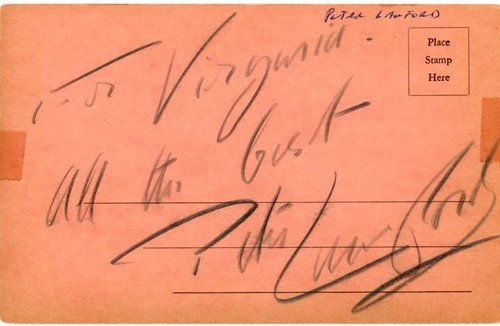 PETER LAWFORD
Place
Stamp
Here
For Virginia.
All the best
Peter Lawford